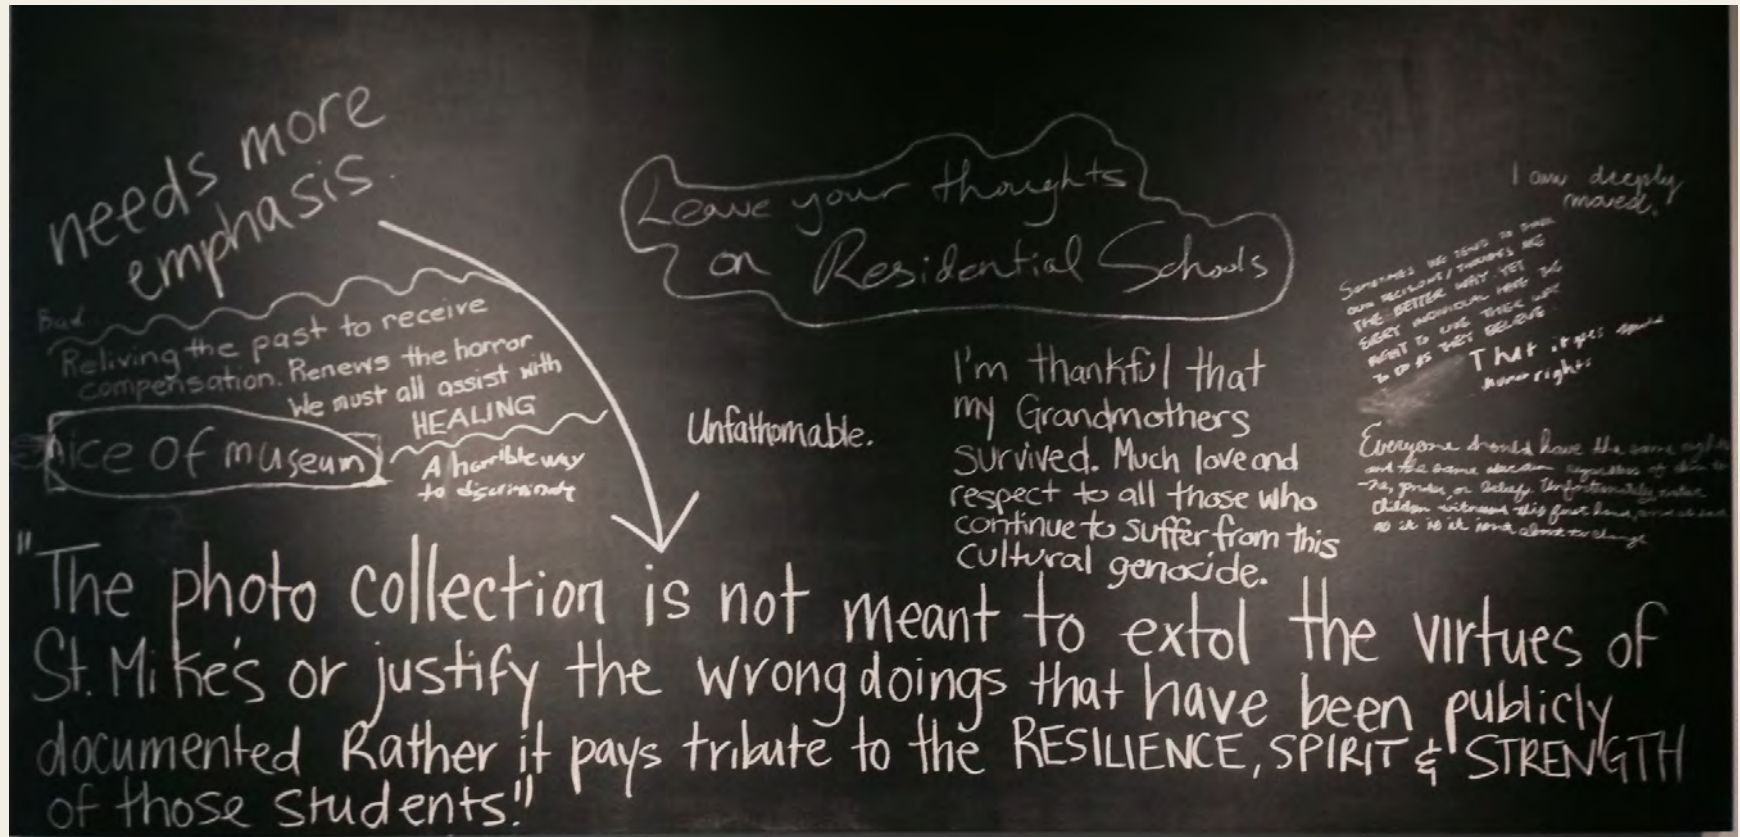 needs more
emphasis.
Bad
Reliving the past to receive
compensation. Renews the horror
We must all assist with
HEALING
nice of museum
A horrible way
to discriminate
Leave your thoughts
on Residential Schools
Unfathomable.
I'm thankful that
my Grandmothers
survived. Much love and
respect to all those who
continue to suffer from this
cultural genocide.
I am deeply
moved.
SOMETIMES WE TEND TO THINK
OUR DECISIONS/THOUGHTS ARE
THE BETTER WAY YET
EVERY INDIVIDUAL HAVE THE
RIGHT TO LIVE THEIR WAY
TO DO AS THEY BELIEVE
That it goes
human rights
Everyone should have the same rights
and the same regardless of skin to
ne, gender, or beliefs. Unfortunately, native
children witnessed this first hand, and
as it is it isnt about to change
"The photo collection is not meant to extol the virtues of
St. Mike's or justify the wrongdoings that have been publicly
documented Rather it pays tribute to the RESILIENCE, SPIRIT & STRENGTH
of those students."